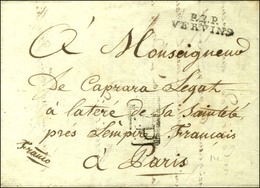 P.2.P.
VERVINS
A Monseigneur
De Caprara Légat
à latere de Sa Sainteté
près l'Empire Français
à Paris
franco